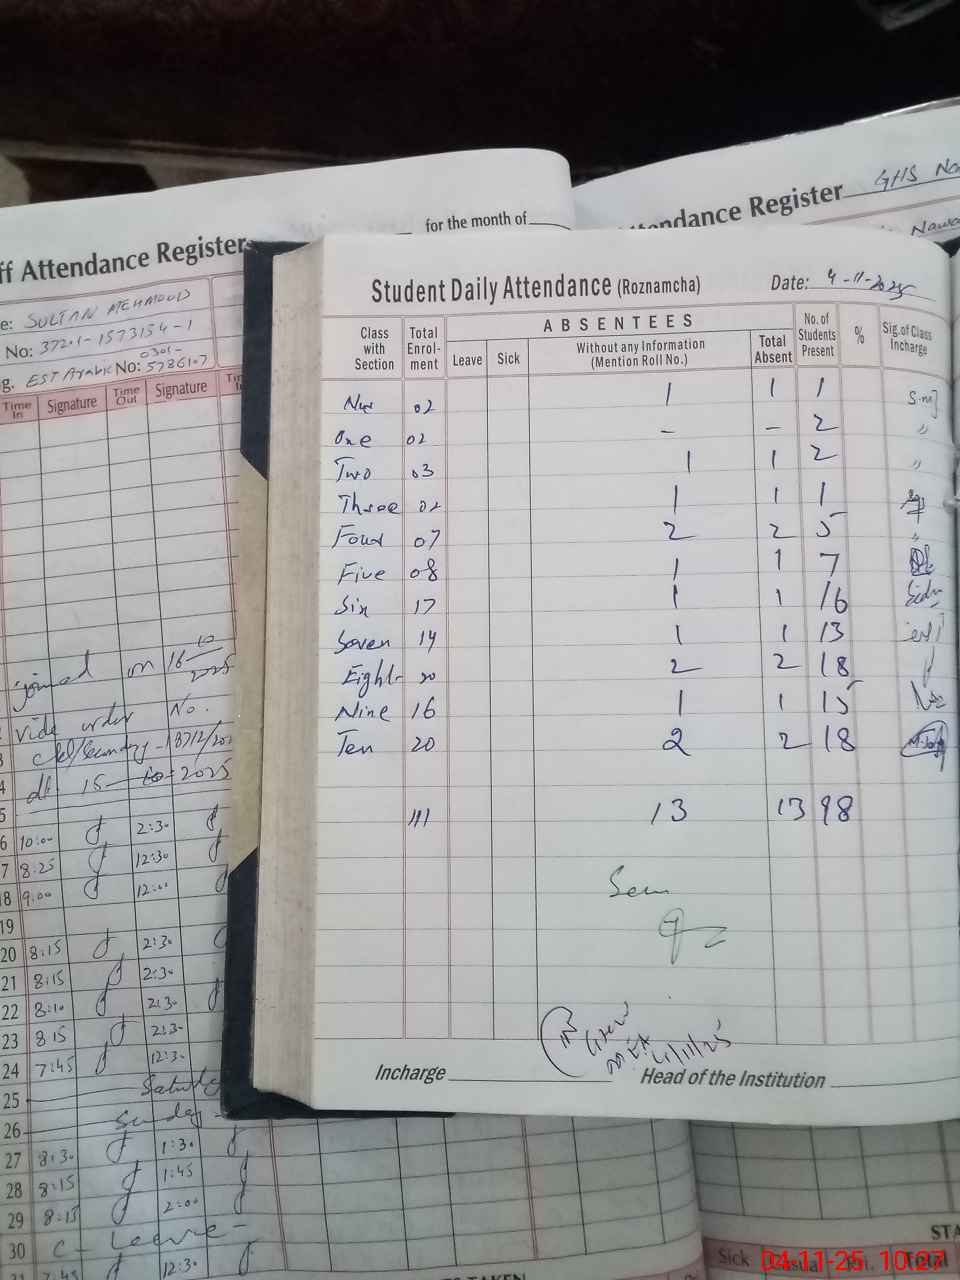 for the month of
ff Attendance Register
e: SULTAN MEHMOOD
No: 37201-1573154-1
g. EST Arabic No: 0301-5786107
Time In Signature Time Out Signature
joined on 16-10-2025
vide order No.
dt 15-10-2025
6 10:00 2:30
7 8:25 12:30
18 9:00 12:00
19
20 8:15 2:30
21 8:15 2:30
22 8:10 2:30
23 8 15 2:30
24 7:45 12:30
25 Saturday
26 Sunday -
27 8:30 1:30
28 8:15 1:45
29 8:15 2:00
30 C - Leave -
7:45 12:30
ttendance Register GHS
Student Daily Attendance (Roznamcha) Date: 4-11-2025
Class with Section Total Enrol-ment ABSENTEES No. of Students Present % Sig. of Class Incharge
Leave Sick Without any Information (Mention Roll No.) Total Absent
02 1 1 1
One 02 - - 2
Two 03 1 1 2
Three 02 1 1 1
Four 07 2 2 5
Five 08 1 1 7
Six 17 1 1 16
Seven 14 1 1 13
Eight 20 2 2 18
Nine 16 1 1 15
Ten 20 2 2 18
111 13 13 98
4/11/25
Incharge Head of the Institution
STA
Sick Casual Total
04-11-25 10:27